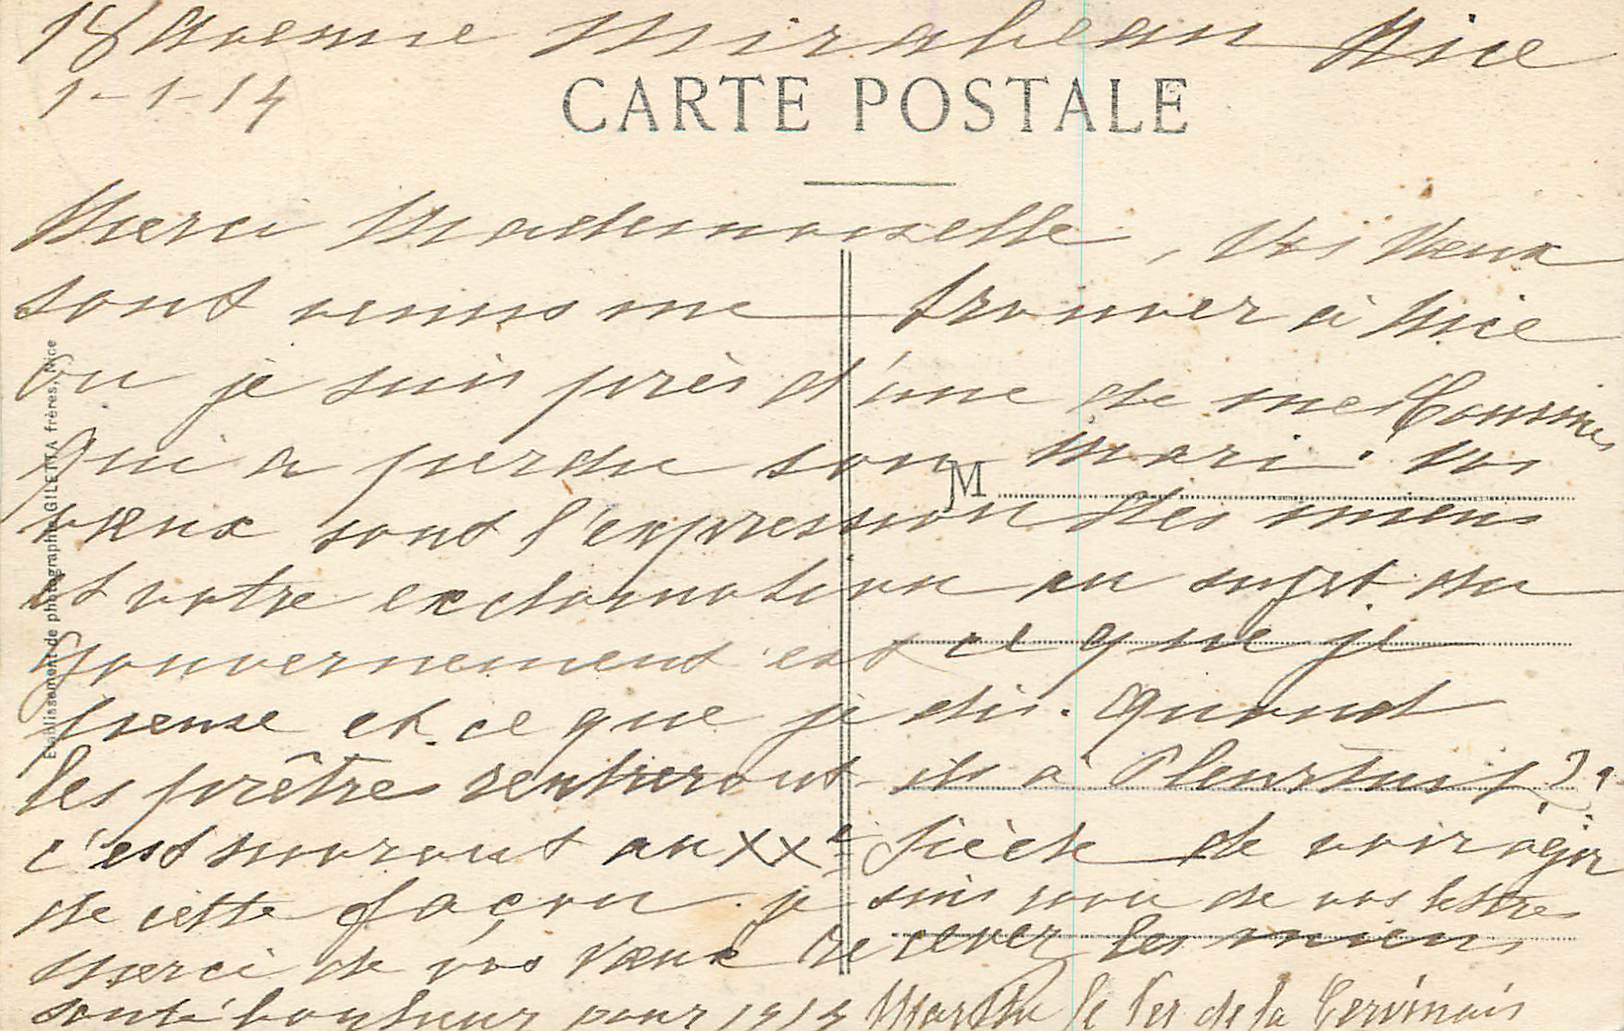 18 Avenue Mirabeau Nice
1-1-14
CARTE POSTALE
Merci Mademoiselle, Vos Vœux
sont venus me trouver à Nice
ou je suis près d'une de mes Cousines
qui a perdu son mari. Vos
M
vœux sont l'expression des miens
et votre exclamation au sujet du
Gouvernement est ce que je
pense et ce que je dis. Quand
les prêtres rentreront ils à Pleurtuit ?
c'est navrant au XXe Siècle de voir agir
de cette façon. je suis ravi de vos lettres
merci de vos Vœux recever les miens
santé bonheur pour 1914 Marthe le Fer de la Gervinais
Etablissement de photographie GILETTA frères, Nice